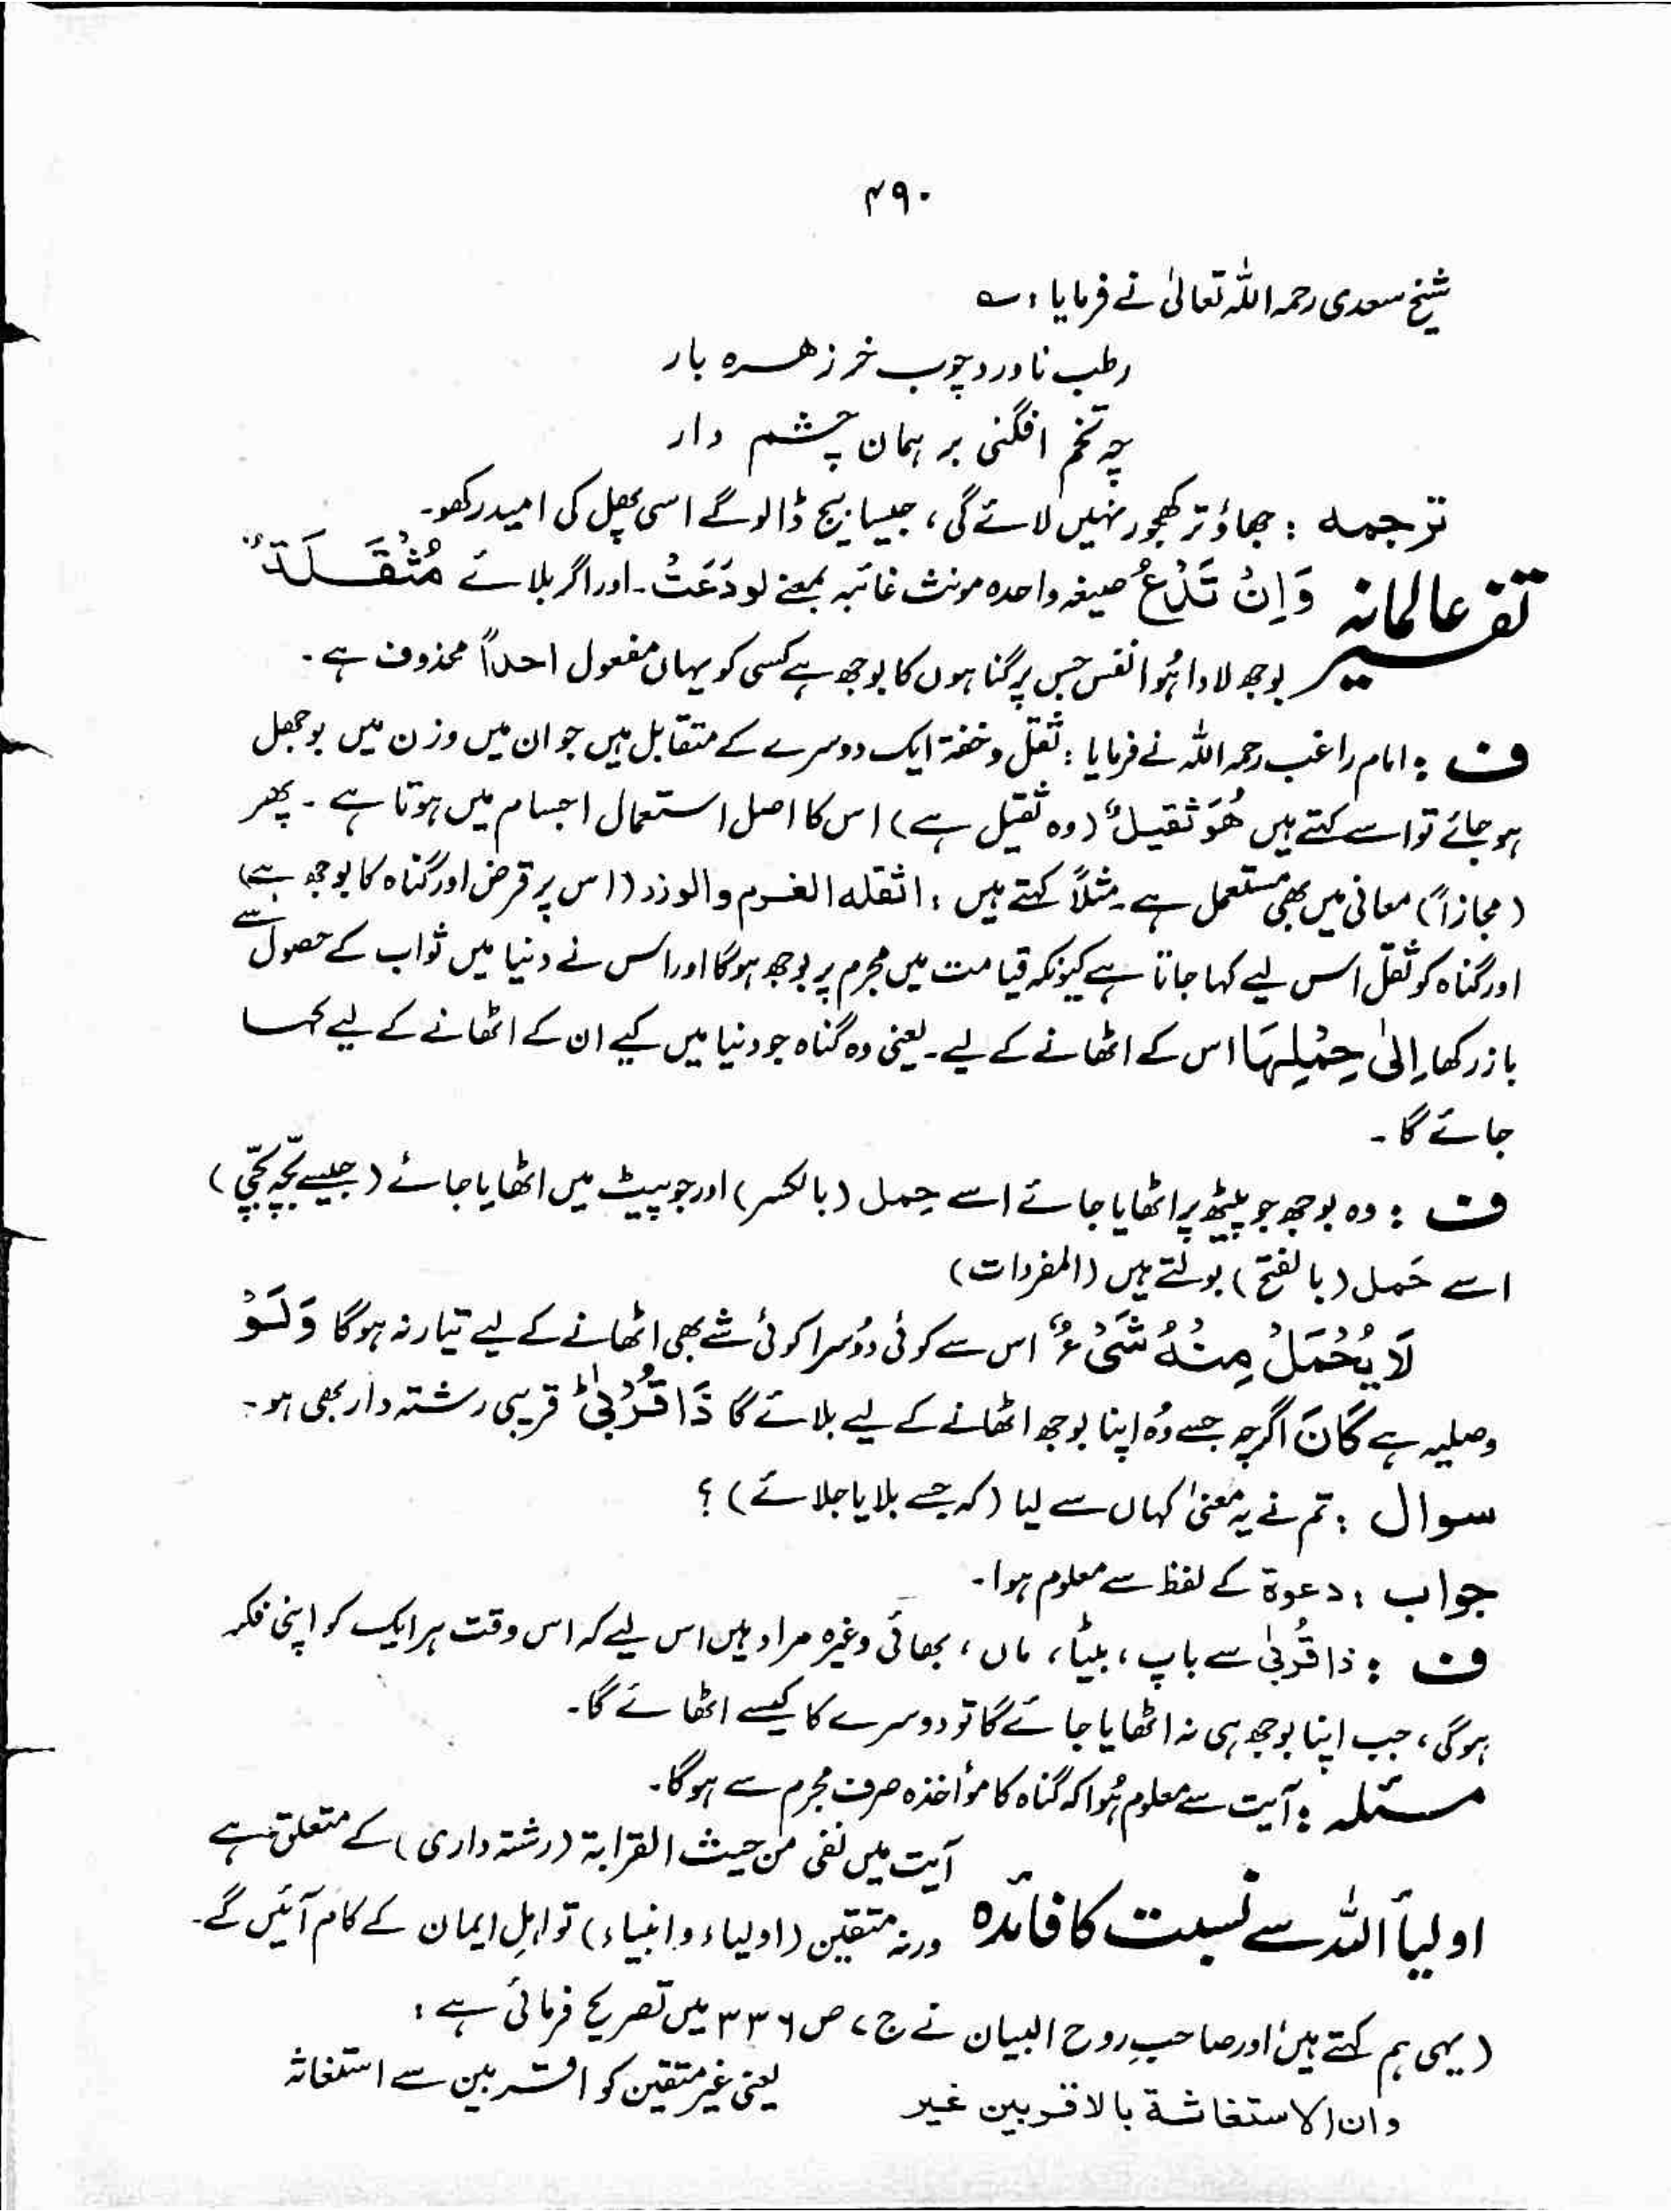 ۴۹۰
شیخ سعدی رحمہ اللہ تعالیٰ نے فرمایا : ؎
رطب ناورد چوب خر زھرہ بار
چہ تخم افگنی بر ہمان چشم دار
ترجمہ : جھاؤ تر کھجور نہیں لائے گی ، جیسا بیج ڈالو گے اسی پھل کی امید رکھو۔
تفسیر عالمانہ وَاِنْ تَدْعُ صیغہ واحدہ مونث غائبہ بمعنے لو دَعَتْ ۔ اور اگر بلائے مُثْقَلَةٌ
بوجھ لادا ہُوا نفس جس پر گناہوں کا بوجھ ہے کسی کو یہاں مفعول احداً محذوف ہے ۔
ف : امام راغب رحمہ اللہ نے فرمایا : ثقل و خفۃ ایک دوسرے کے متقابل ہیں جو ان میں وزن میں بوجھل
ہو جائے تو اسے کہتے ہیں ھُوَ ثقیلٌ (وہ ثقیل ہے) اس کا اصل استعمال اجسام میں ہوتا ہے ۔ پھر
(مجازاً) معانی میں بھی مستعمل ہے ۔ مثلاً کہتے ہیں : اثقله الغرم والوزر (اس پر قرض اور گناہ کا بوجھ ہے)
اور گناہ کو ثقل اس لیے کہا جاتا ہے کیونکہ قیامت میں مجرم پر بوجھ ہوگا اور اس نے دنیا میں ثواب کے حصول سے
باز رکھا اِلیٰ حِمْلِہَا اس کے اٹھانے کے لیے ۔ یعنی وہ گناہ جو دنیا میں کیے ان کے اٹھانے کے لیے کہا
جائے گا ۔
ف : وہ بوجھ جو پیٹھ پر اٹھایا جائے اسے حِمل (بالکسر) اور جو پیٹ میں اٹھایا جائے (جیسے بچّہ بچّی)
اسے حَمل (بالفتح) بولتے ہیں (المفردات)
لَا یُحْمَلُ مِنْهُ شَیْءٌ اس سے کوئی دُوسرا کوئی شے بھی اٹھانے کے لیے تیار نہ ہوگا وَلَوْ
وصلیہ ہے کَانَ اگرچہ جسے وُہ اپنا بوجھ اٹھانے کے لیے بلائے گا ذَا قُرْبیٰ قریبی رشتہ دار بھی ہو ۔
سوال : تم نے یہ معنیٰ کہاں سے لیا (کہ جسے بلایا جلائے) ؟
جواب : دعوۃ کے لفظ سے معلوم ہوا ۔
ف : ذا قُربیٰ سے باپ ، بیٹا ، ماں ، بھائی وغیرہ مراد ہیں اس لیے کہ اس وقت ہر ایک کو اپنی فکر
ہوگی ، جب اپنا بوجھ ہی نہ اٹھایا جائے گا تو دوسرے کا کیسے اٹھائے گا ۔
مسئلہ : آیت سے معلوم ہُوا کہ گناہ کا مؤاخذہ صرف مجرم سے ہوگا ۔
آیت میں نفی من حیث القرابۃ (رشتہ داری) کے متعلق ہے
اولیأ اللہ سے نسبت کا فائدہ ورنہ متقین (اولیاء و انبیاء) تو اہلِ ایمان کے کام آئیں گے ۔
(یہی ہم کہتے ہیں) اور صاحبِ روح البیان نے ج ۷ ص ۳۳۶ میں تصریح فرمائی ہے :
وان الاستغاثة بالاقربین غیر
یعنی غیر متقین کو اقربین سے استغاثہ